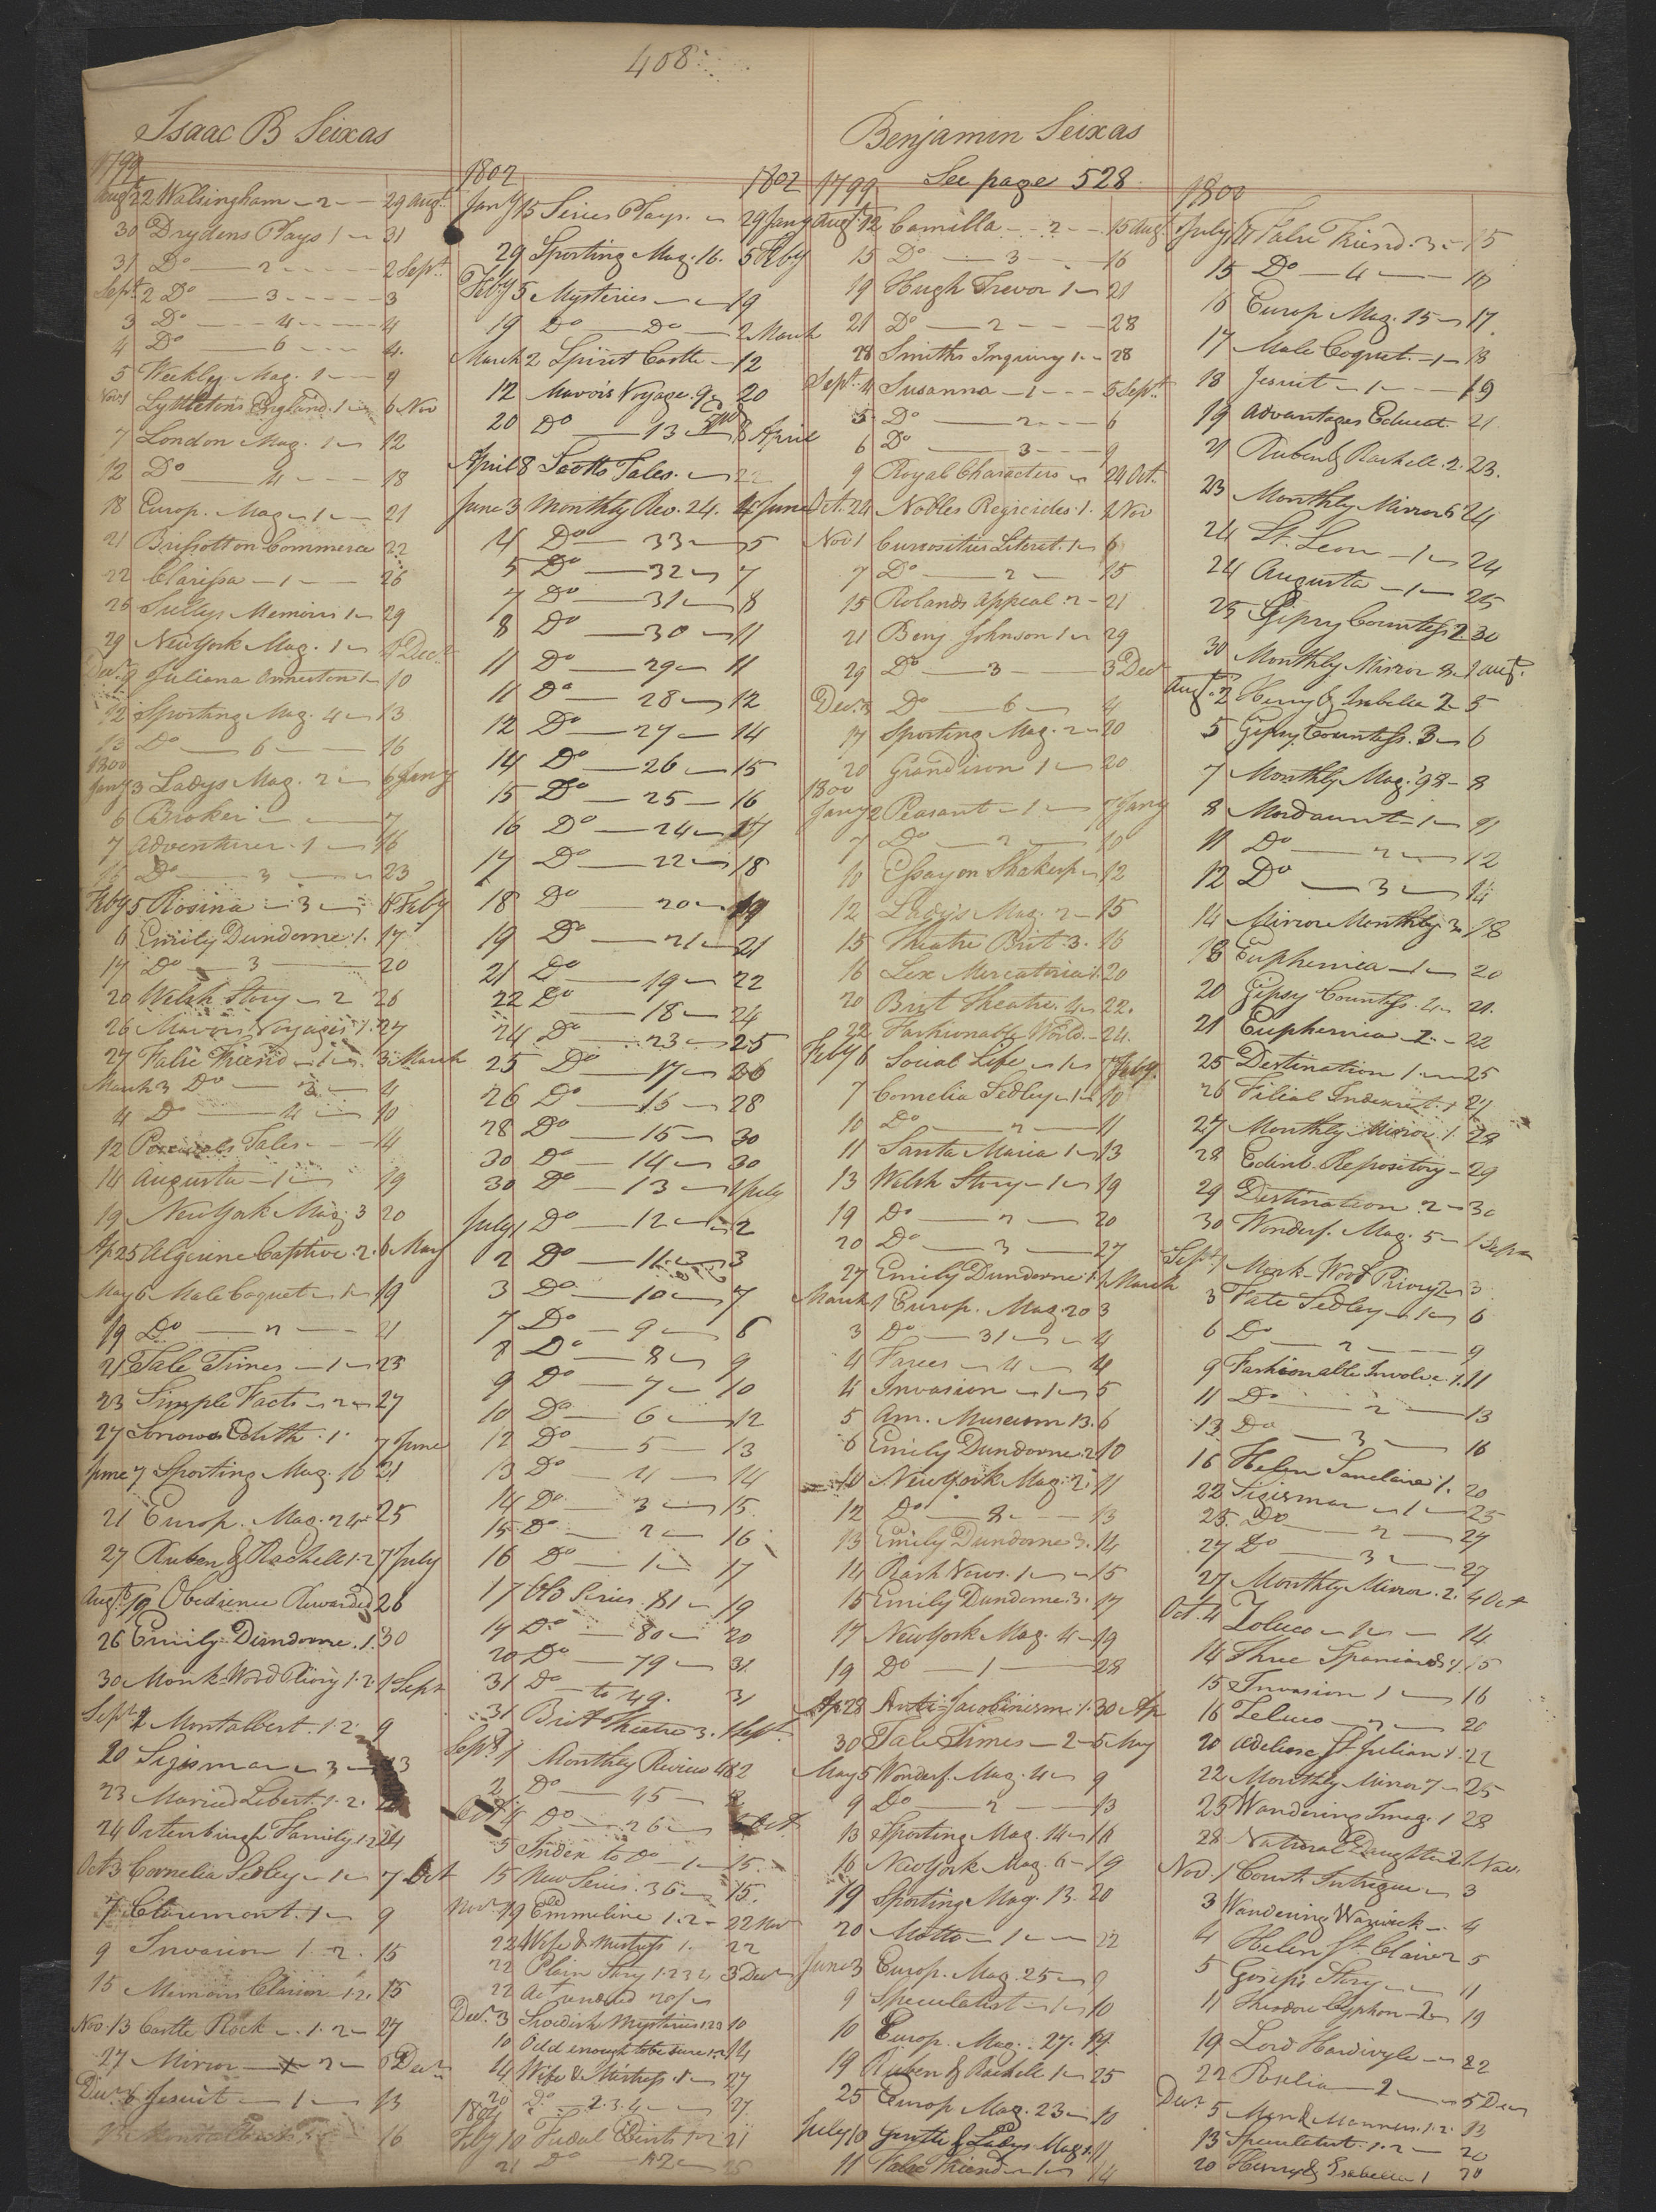 408
Isaac B Seixas
1799
Augt 22 Walsingham - 2 - 29 Augt
30 Drydens Plays 1 - 31
31 Do - 2 - 2 Sept
Sept 2 Do - 3 - 3
3 Do - 4 - 4
4 Do - 6 - 4
5 Weekly Mag. 1 - 9
Nov 1 Lyttletons England. 1 - 6 Nov
7 London Mag. 1 - 12
12 Do - 4 - 18
18 Europ. Mag - 1 - 21
21 Brissott on Commerce 22
22 Clarissa - 1 - 26
26 Sullys Memoirs 1 - 29
29 NewYork Mag. 1 - Dec
Decr Juliana Ormeston 1 - 10
12 Sporting Mag. 4 - 13
13 Do - 6 - 16
1800
Jany 3 Ladys Mag. 2 - 6 Jany
6 Broker - 7
7 Adventurer. 1 - 16
Do - 3 - 23
Feby 5 Rosina - 3 - 6 Feby
6 Emily Dundorne. 1. 17
17 Do - 3 - 20
20 Welsh Story - 2 26
26 Mavors Voyages 1. 27
27 False Friend - 1 - 3 March
March 3 Do - 4
4 Do - 4 - 10
12 Percivals Tales - 14
14 Augusta - 1 - 19
19 NewYork Mag. 3 20
Ap 25 Algerine Captive. 2. 6 May
May 6 Male Coquet - 1 - 19
19 Do - 2 - 21
21 Tale Times - 1 - 23
23 Simple Facts - 2 - 27
27 Sorrows Edith. 1. 7 June
June 7 Sporting Mag. 16 21
21 Europ. Mag. 24 - 25
27 Ruben & Rachell 1. 2 7 July
Augt 19 Obedience Rewarded 26
26 Emily Dundorne. 1. 30
30 Monk-Wood Priory 1. 2. 1 Sept
Sept 2 Montalbert. 1. 2. 9
20 Sigismar - 3 - 23
23 Married Libert. 1. 2.
24 Ortenburgh Family. 1. 2 24
Oct 3 Cornelia Sedley - 1 - 7 Oct
7 Claremont. 1 - 9
9 Invasion 1. 2. 15
15 Memoirs Clarion 1. 2. 15
Nov. 13 Castle Rock - 1. 2 - 27
27 Mirror - 2 - 6 Decr
Decr 6 Jesuit - 1 - 13
16
1802
1802
Jany 15 Series Plays. - 29 Jany
29 Sporting Mag. 16. 5 Feby
Feby 5 Mysteries - 19
19 Do - Do - 2 March
March 2 Spirit Castle - 12
12 Mavors Voyage. 9 - 20
20 Do - 13 - 8 April
April 8 Scotts Tales. - 22
June 3 Monthly Rev. 24. 4 June
4 Do - 33 - 5
5 Do - 32 - 7
7 Do - 31 - 8
8 Do - 30 - 11
11 Do - 29 - 11
11 Do - 28 - 12
12 Do - 27 - 14
14 Do - 26 - 15
15 Do - 25 - 16
16 Do - 24 - 17
17 Do - 22 - 18
18 Do - 20 - 19
19 Do - 21 - 21
21 Do - 19 - 22
22 Do - 18 - 24
24 Do - 23 - 25
25 Do - 17 - 26
26 Do - 16 - 28
28 Do - 15 - 30
30 Do - 14 - 30
30 Do - 13 - 1 July
July 1 Do - 12 - 2
2 Do - 11 - 3
3 Do - 10 - 7
7 Do - 9 - 8
8 Do - 8 - 9
9 Do - 7 - 10
10 Do - 6 - 12
12 Do - 5 - 13
13 Do - 4 - 14
14 Do - 3 - 15
15 Do - 2 - 16
16 Do - 1 - 17
17 Old Series. 81 - 19
19 Do - 80 - 20
20 Do - 79 - 31
31 Do - to 49. 31
31 Brit Theatre 3. 1 Sept.
Sept 1 Monthly Review 48 2
2 Do - 45 - 2
Oct 4 Do - 26 - Oct
5 Index to Do - 1 - 15
15 New Series. 36 - 15.
Novr 19 Emmeline 1. 2 - 22 Nov
22 Wife & Mistress 1. 22
22 Plain Story 1. 2 3 4 3 Decr
22
Decr 3 Swedish Mysteries 1 2 3 10
10 Odd enough to be sure 1. 2 14
14 Wife & Mistress 1 - 27
20 Do - 2. 3. 4 - 27
Feby 10 Feudal Events 1 - 2 21
21 Do
Benjamin Seixas
See page 528
1799
Augt 12 Camilla - 2 - 15 Augt
15 Do - 3 - 16
19 Hugh Trevor 1 - 21
21 Do - 2 - 28
28 Smiths Inquiry 1 - 28
Sept 4 Susanna - 1 - 5 Sept
5 Do - 2 - 6
6 Do - 3 - 9
9 Royal Characters - 24 Oct.
Oct. 24 Nobles Regicides. 1. 1 Nov
Nov 1 Curiosities Literat. 1 - 6
7 Do - 2 - 15
15 Rolands Appeal. 2 - 21
21 Benj Johnson 1 - 29
29 Do - 3 - 3 Dec
Decr 3 Do - 6 - 4
17 Sporting Mag. 2 - 20
20 Grandison 1 - 20
1800
Jany 2 Peasant - 1 - 7 Jany
7 Do - 2 - 10
10 Essay on Shakesp - 12
12 Lady's Mag. 2 - 15
15 Theatre Brit. 3. 16
16 Lex Mercatoria 1. 20
20 Brit Theatre. 4 - 22.
22 Fashionable World - 24.
Feby 6 Social Life - 1 - 7 Feby.
7 Cornelia Sedley - 1 - 10
10 Do - 2 - 11
11 Santa Maria 1 - 13
13 Welsh Story - 1 - 19
19 Do - 2 - 20
20 Do - 3 - 27
27 Emily Dundorne 1. 1 March
March 1 Europ. Mag. 20 3
3 Do - 31 - 4
4 Farces - 4 - 4
4 Invasion - 1 - 5
5 Am. Museum 13. 6
6 Emily Dundorne. 2 10
10 NewYork Mag. 2. 11
12 Do - 8 - 13
13 Emily Dundorne 3. 14
14 Rash Vows. 1 - 15
15 Emily Dundorne. 3. 17
17 NewYork Mag. 4 - 19
19 Do - 1 - 28
Ap 28 Anti-Jacobinism 1. 30 Ap
30 Tale Times - 2 - 5 May
May 5 Wonderf. Mag. 4 - 9
9 Do - 2 - 13
13 Sporting Mag. 14 - 16
16 NewYork Mag. 6 - 19
19 Sporting Mag. 13. 20
20 Motto - 1 - 22
June 3 Europ. Mag. 25 - 9
9 Speculatist - 1 - 10
10 Europ. Mag. 27. 19.
19 Ruben & Rachell 1 - 25
25 Europ Mag. 23 - 10
July 10 Gentle & Ladys Mag 1. 11
11 False Friend - 1 - 14
1800
July 14 False Friend. 3 - 15
15 Do - 4 - 16
16 Europ Mag. 15 - 17.
17 Male Coquet. - 1 - 18
18 Jesuit - 1 - 19
19 Advantages Educat. 21
21 Ruben & Rachell. 2. 23.
23 Monthly Mirror 6 24
24 St. Leon - 1 - 24
24 Augusta - 1 - 25
25 Gipsy Countess 2 30
30 Monthly Mirror 8. 2 Augt.
Augt. 2 Henry & Isabella 2 - 5
5 Gipsy Countess. 3 - 6
7 Monthly Mag. '98 - 8
8 Mordaunt - 1 - 11
11 Do - 2 - 12
12 Do - 3 - 14
14 Mirror Monthly. 3. 18
18 Euphemia - 1 - 20
20 Gipsy Countess. 4 - 21.
21 Euphemia 2 - 22
25 Destination 1 - 25
26 Filial Indiscret. 1 27
27 Monthly Mirror. 1. 28
28 Edinb. Repository - 29
29 Destination. 2 - 30
30 Wonderf. Mag. 5 - 1 Sepr
Sept 1 Monk-Wood Priory 2 - 3
3 Fate Sedley - 1 - 6
6 Do - 2 - 9
9 Fashionable Involve. 1. 11
11 Do - 2 - 13
13 Do - 3 - 16
16 Helen Sinclaire 1. 20
22 Sigismar - 1 - 25
25. Do - 2 - 27
27 Do - 3 - 27
27 Monthly Mirror. 2. 4 Oct
Oct. 4 Zeluco - 1 - 14
14 Three Spaniards 1. 15
15 Invasion 1 - 16
16 Zeluco - 2 - 20
20 Adeline St Julian 1. 22
22 Monthly Mirror 7 - 25
25 Wandering Imag. 1 28
28 Natural Daughter 2 1 Nov.
Nov. 1 Court Intrigue - 3
3 Wandering Warwick - 4
4 Helen St Clair 2 5
5 Gossip's Story - 11
11 Theodore Cyphon - 2 - 19
19 Lord Hardivyle - 22
22 Rosalia - 2 - 5 Decr
Decr. 5 Men & Manners. 1. 2. 13
13 Speculatist. 1. 2 - 20
20 Henry & Isabella 1 30